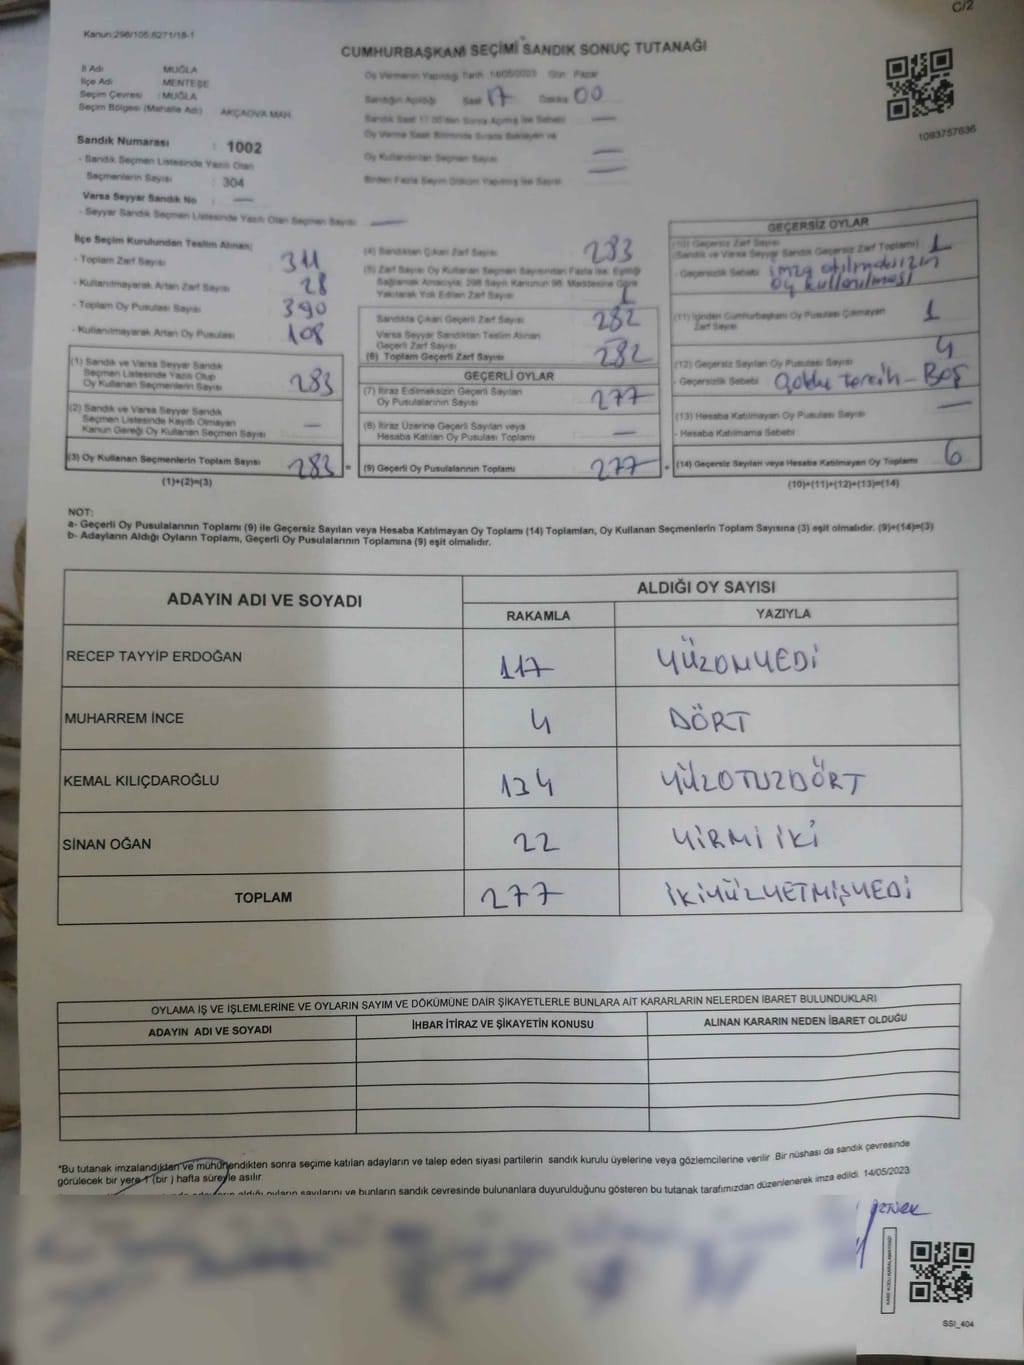 C/2
Kanun:298/105,6271/18-1
CUMHURBAŞKANI SEÇİMİ SANDIK SONUÇ TUTANAĞI
İl Adı MUĞLA
İlçe Adı MENTEŞE
Seçim Çevresi : MUĞLA
Seçim Bölgesi (Mahalle Adı) AKÇAOVA MAH
Oy Vermenin Yapıldığı Tarih 14/05/2023 Gün Pazar
Sandığın Açıldığı Saat 17 Dakika 00
Sandık Saat 17.00'den Sonra Açılmış İse Sebebi —
Oy Verme Saati Bitiminde Sırada Bekleyen ve
Oy Kullandırılan Seçmen Sayısı —
Birden Fazla Sayım Döküm Yapılmış İse Sayısı —
1093757636
Sandık Numarası : 1002
- Sandık Seçmen Listesinde Yazılı Olan
Seçmenlerin Sayısı : 304
Varsa Seyyar Sandık No —
- Seyyar Sandık Seçmen Listesinde Yazılı Olan Seçmen Sayısı —
İlçe Seçim Kurulundan Teslim Alınan;
- Toplam Zarf Sayısı 311
- Kullanılmayarak Artan Zarf Sayısı 28
- Toplam Oy Pusulası Sayısı 390
- Kullanılmayarak Artan Oy Pusulası 108
(1) Sandık ve Varsa Seyyar Sandık
Seçmen Listesinde Yazılı Olup
Oy Kullanan Seçmenlerin Sayısı 283
(2) Sandık ve Varsa Seyyar Sandık
Seçmen Listesinde Kayıtlı Olmayan
Kanun Gereği Oy Kullanan Seçmen Sayısı —
(3) Oy Kullanan Seçmenlerin Toplam Sayısı 283 =
(1)+(2)=(3)
(4) Sandıktan Çıkan Zarf Sayısı 283
(5) Zarf Sayısı Oy Kullanan Seçmen Sayısından Fazla İse, Eşitliği
Sağlamak Amacıyla; 298 Sayılı Kanunun 98. Maddesine Göre
Yakılarak Yok Edilen Zarf Sayısı
Sandıkta Çıkan Geçerli Zarf Sayısı 282
Varsa Seyyar Sandıktan Teslim Alınan
Geçerli Zarf Sayısı —
(6) Toplam Geçerli Zarf Sayısı 282
GEÇERLİ OYLAR
(7) İtiraz Edilmeksizin Geçerli Sayılan
Oy Pusulalarının Sayısı 277
(8) İtiraz Üzerine Geçerli Sayılan veya
Hesaba Katılan Oy Pusulası Toplamı —
(9) Geçerli Oy Pusulalarının Toplamı 277 +
GEÇERSİZ OYLAR
(10) Geçersiz Zarf Sayısı
(Sandık ve Varsa Seyyar Sandık Geçersiz Zarf Toplamı) 1
- Geçersizlik Sebebi imza atılmaksızın
oy kullanılması
(11) İçinden Cumhurbaşkanı Oy Pusulası Çıkmayan
Zarf Sayısı 1
(12) Geçersiz Sayılan Oy Pusulası Sayısı 4
- Geçersizlik Sebebi Çoklu Tercih - Boş
(13) Hesaba Katılmayan Oy Pusulası Sayısı —
- Hesaba Katılmama Sebebi
(14) Geçersiz Sayılan veya Hesaba Katılmayan Oy Toplamı 6
(10)+(11)+(12)+(13)=(14)
NOT:
a- Geçerli Oy Pusulalarının Toplamı (9) ile Geçersiz Sayılan veya Hesaba Katılmayan Oy Toplamı (14) Toplamları, Oy Kullanan Seçmenlerin Toplam Sayısına (3) eşit olmalıdır. (9)+(14)=(3)
b- Adayların Aldığı Oyların Toplamı, Geçerli Oy Pusulalarının Toplamına (9) eşit olmalıdır.
ADAYIN ADI VE SOYADI ALDIĞI OY SAYISI
RAKAMLA YAZIYLA
RECEP TAYYİP ERDOĞAN 117 YÜZONYEDİ
MUHARREM İNCE 4 DÖRT
KEMAL KILIÇDAROĞLU 134 YÜZOTUZDÖRT
SİNAN OĞAN 22 YİRMİ İKİ
TOPLAM 277 İKİYÜZYETMİŞYEDİ
OYLAMA İŞ VE İŞLEMLERİNE VE OYLARIN SAYIM VE DÖKÜMÜNE DAİR ŞİKAYETLERLE BUNLARA AİT KARARLARIN NELERDEN İBARET BULUNDUKLARI
ADAYIN ADI VE SOYADI İHBAR İTİRAZ VE ŞİKAYETİN KONUSU ALINAN KARARIN NEDEN İBARET OLDUĞU
*Bu tutanak imzalandıktan ve mühürlendikten sonra seçime katılan adayların ve talep eden siyasi partilerin sandık kurulu üyelerine veya gözlemcilerine verilir. Bir nüshası da sandık çevresinde
görülecek bir yere 1 (bir) hafta süreyle asılır.
aldığı oyların sayılarını ve bunların sandık çevresinde bulunanlara duyurulduğunu gösteren bu tutanak tarafımızdan düzenlenerek imza edildi. 14/05/2023
SSI_404